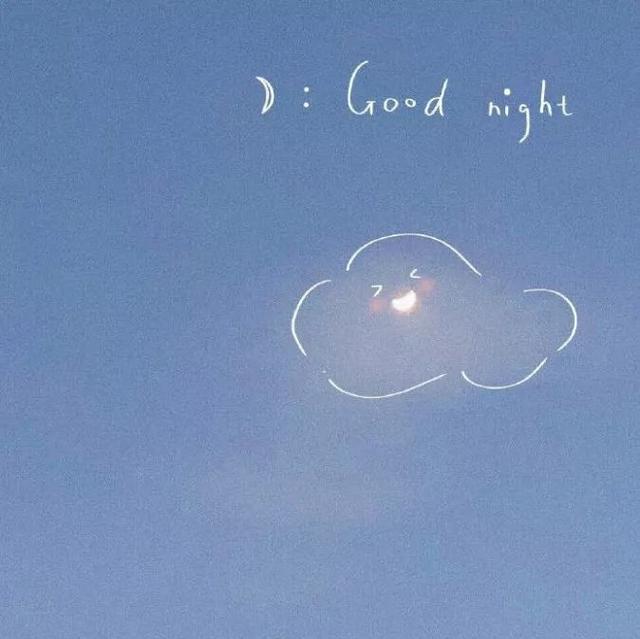 ☽ : Good night